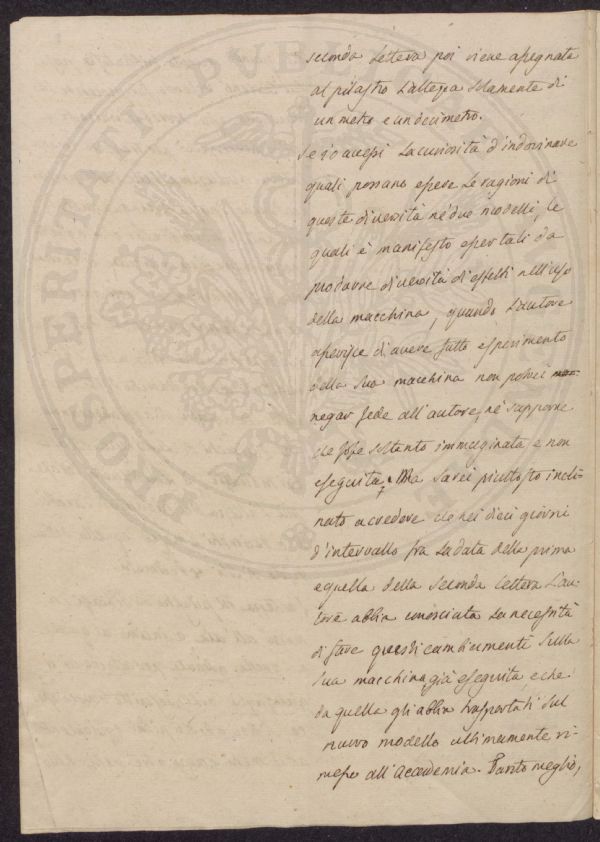 seconda lettera poi viene assegnata
al pilastro l'altezza solamente di
un metro e un decimetro.
Se io avessi la curiosità d'indovinare
quali possano essere le ragioni di
queste diversità ne' due modelli, le
quali è manifesto esser tali da
produrre diversità di effetti nell'uso
della macchina, quando l'autore
asserisce di avere fatto esperimento
della sua macchina non potrei
negar fede all'autore, nè supporre
che fosse soltanto immaginata e non
eseguita. Ma sarei piuttosto incli-
nato a credere che nei dieci giorni
d'intervallo fra la data della prima
e quella della seconda lettera l'au-
tore abbia conosciuta la necessità
di fare questi cambiamenti sulla
sua macchina già eseguita, e che
da quella gli abbia trasportati sul
nuovo modello ultimamente ri-
messo all'Accademia. Tanto meglio,
PRO LIBERTATE PVBLICA